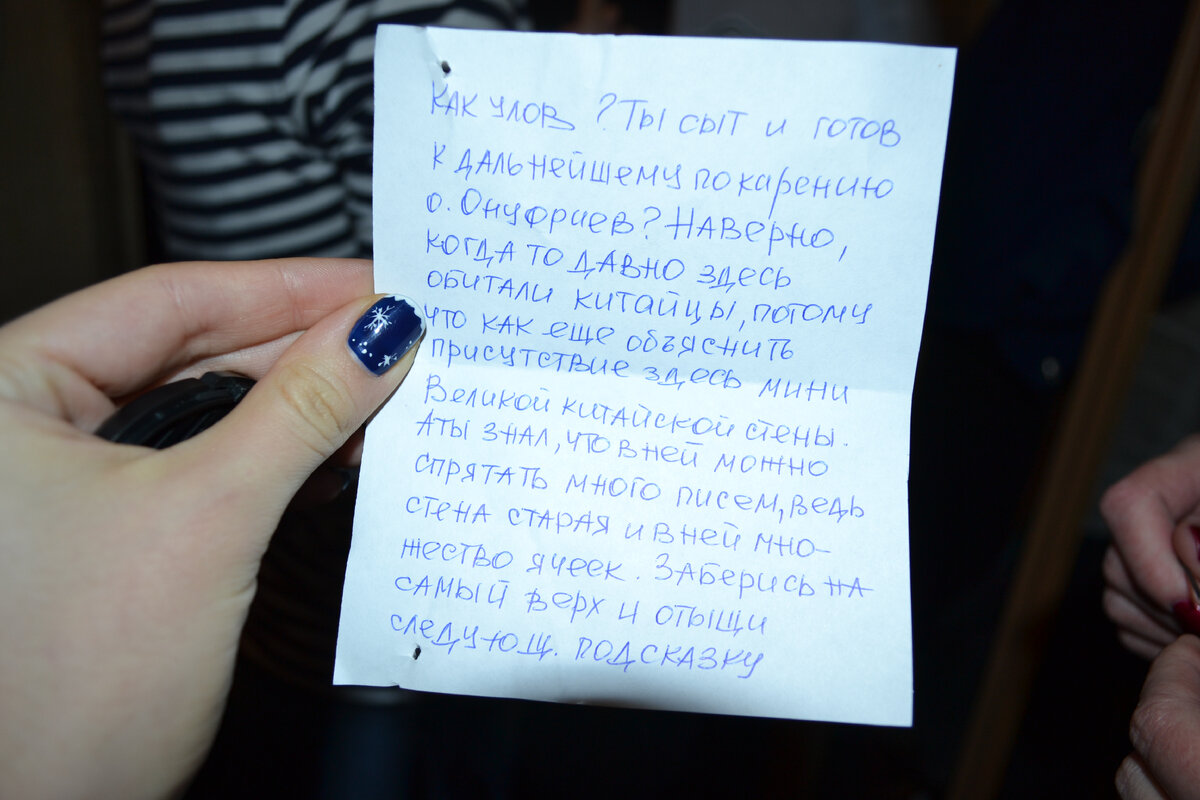 Как улов ? Ты сыт и готов
к дальнейшему покарению
о. Онуфриев? Наверно,
когда то давно здесь
обитали китайцы, потому
что как еще объяснить
присутствие здесь мини
Великой китайской стены.
А ты знал, что в ней можно
спрятать много писем, ведь
стена старая и в ней мно-
жество ячеек. Заберись на
самый верх и отыщи
следующ. подсказку